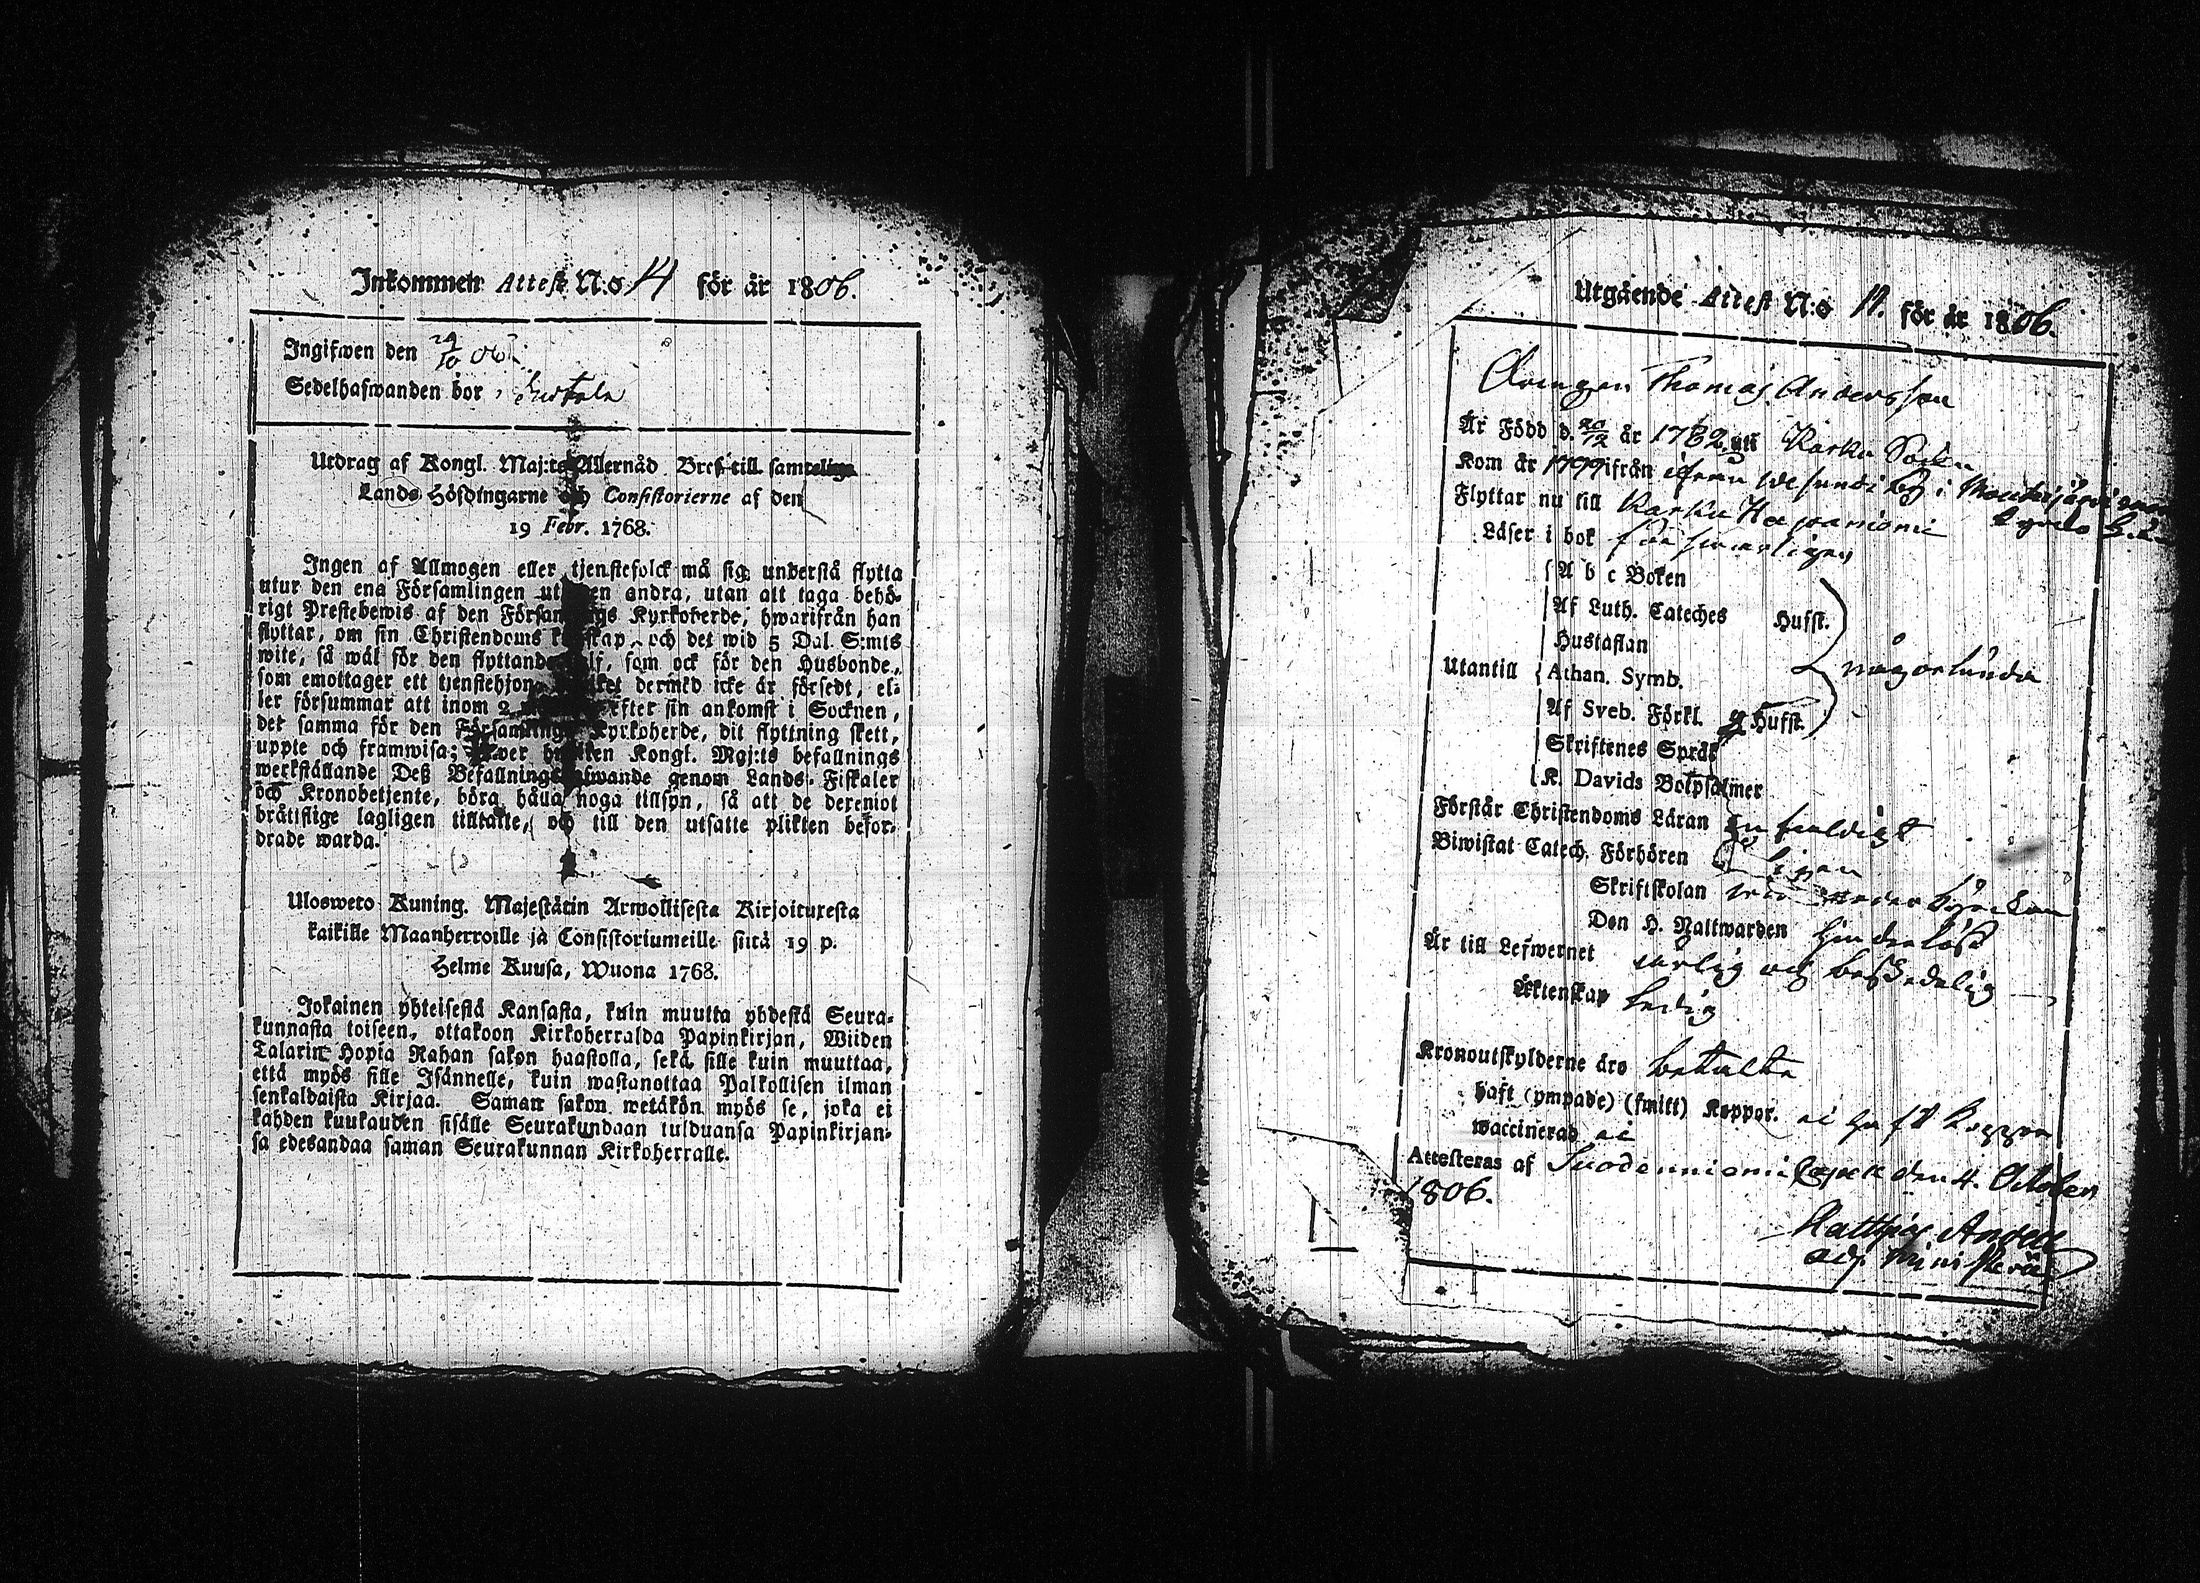 Inkommen Attest N:o 14 för år 1806.
Ingifwen den 24/10 06
Sedelhafwanden bor i
Utdrag af Kongl. Maj:ts Allernåd. Bref till samtelige
Lands Höfdingarne och Consistorierne af den
19 Febr. 1768.
Ingen af Allmogen eller tjenstefolck må sig understå flytta
utur den ena Församlingen uti den andra, utan att taga behö-
rigt Prestebewis af den Församlings Kyrkoherde, hwarifrån han
flyttar, om sin Christendoms kunskap, och det wid 5 Dal. S:mts
wite, så wäl för den flyttande sjelf, som ock för den Husbonde,
som emottager ett tjenstehjon, dermed icke är försedt, el-
ler försummar att inom 2 efter sin ankomst i Socknen,
det samma för den Församlings Kyrkoherde, dit flyttning skett,
uppte och framwisa: Kongl. Maj:ts befallnings
werkställande Deß Befallningshafwande genom Lands-Fiskaler
och Kronobetjente, böra hålla noga tillsyn, så att de deremot
bråtslige lagligen tilltalte, och till den utsatte plikten befor-
drade warda.
Ulosweto Kuning. Majestätin Armollisesta Kirjoituxesta
kaikille Maanherroille ja Consistoriumeille siitä 19 p.
Helme Kuusa, Wuona 1768.
Jokainen yhteisestä Kansasta, kuin muutta yhdestä Seura-
kunnasta toiseen, ottakoon Kirkoherralda Papinkirjan, Wiiden
Talarin Hopia Rahan sakon haastolla, sekä sille kuin muuttaa,
että myös sille Isännelle, kuin wastanottaa Palkollisen ilman
senkaldaista Kirjaa. Saman sakon wetäkön myös se, joka ei
kahden kuukauden sisälle Seurakundaan tulduansa Papinkirjan-
sa edesandaa saman Seurakunnan Kirkoherralle.
Utgående Attest N:o 11. för år 1806.
Drengen Thomas Andersson
Är Född d. 20/12 år 1782 uti Karku Socken
Kom år 1799 ifrån by i
Flyttar nu till Karku Haapaniemi
Läser i bok försvarligen
A b c Boken
Af Luth. Cateches Hufst.
Hustaflan
Utantill Athan. Symb. någorlunda
Af Sveb. Förkl. Hufst.
Skriftenes Språk
K. Davids Botpsalmer
Förstår Christendoms Läran enfaldigt
Biwistat Catech. Förhören
Skriftskolan
Den H. Nattwarden hinderlöst
Är till Lefwernet ärlig och beskedelig
Äktenskap ledig
Kronoutskylderne äro betalta
haft (ympade) (smitt) Koppor. ei haft koppor
waccinerad ei
Attesteras af Suodenniemi Capell den 4. October
1806.
Matthias
adj. ministerii